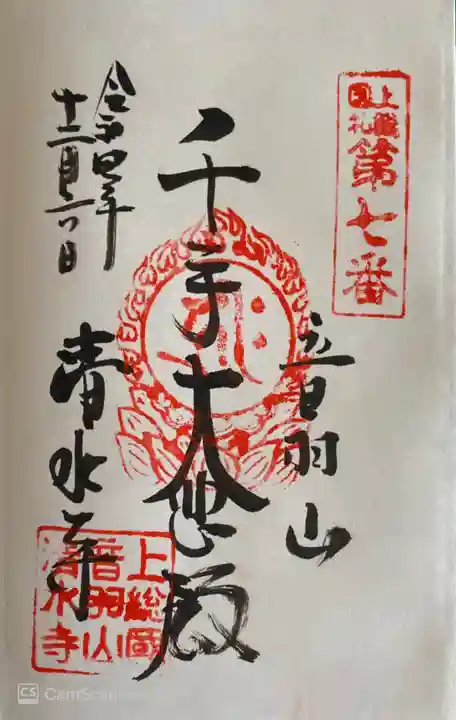 上総国札
第七番
音羽山
千手大悲殿
令和四年
十二月二六日
清水寺
上総国
音羽山
清水寺
CS CamScanner